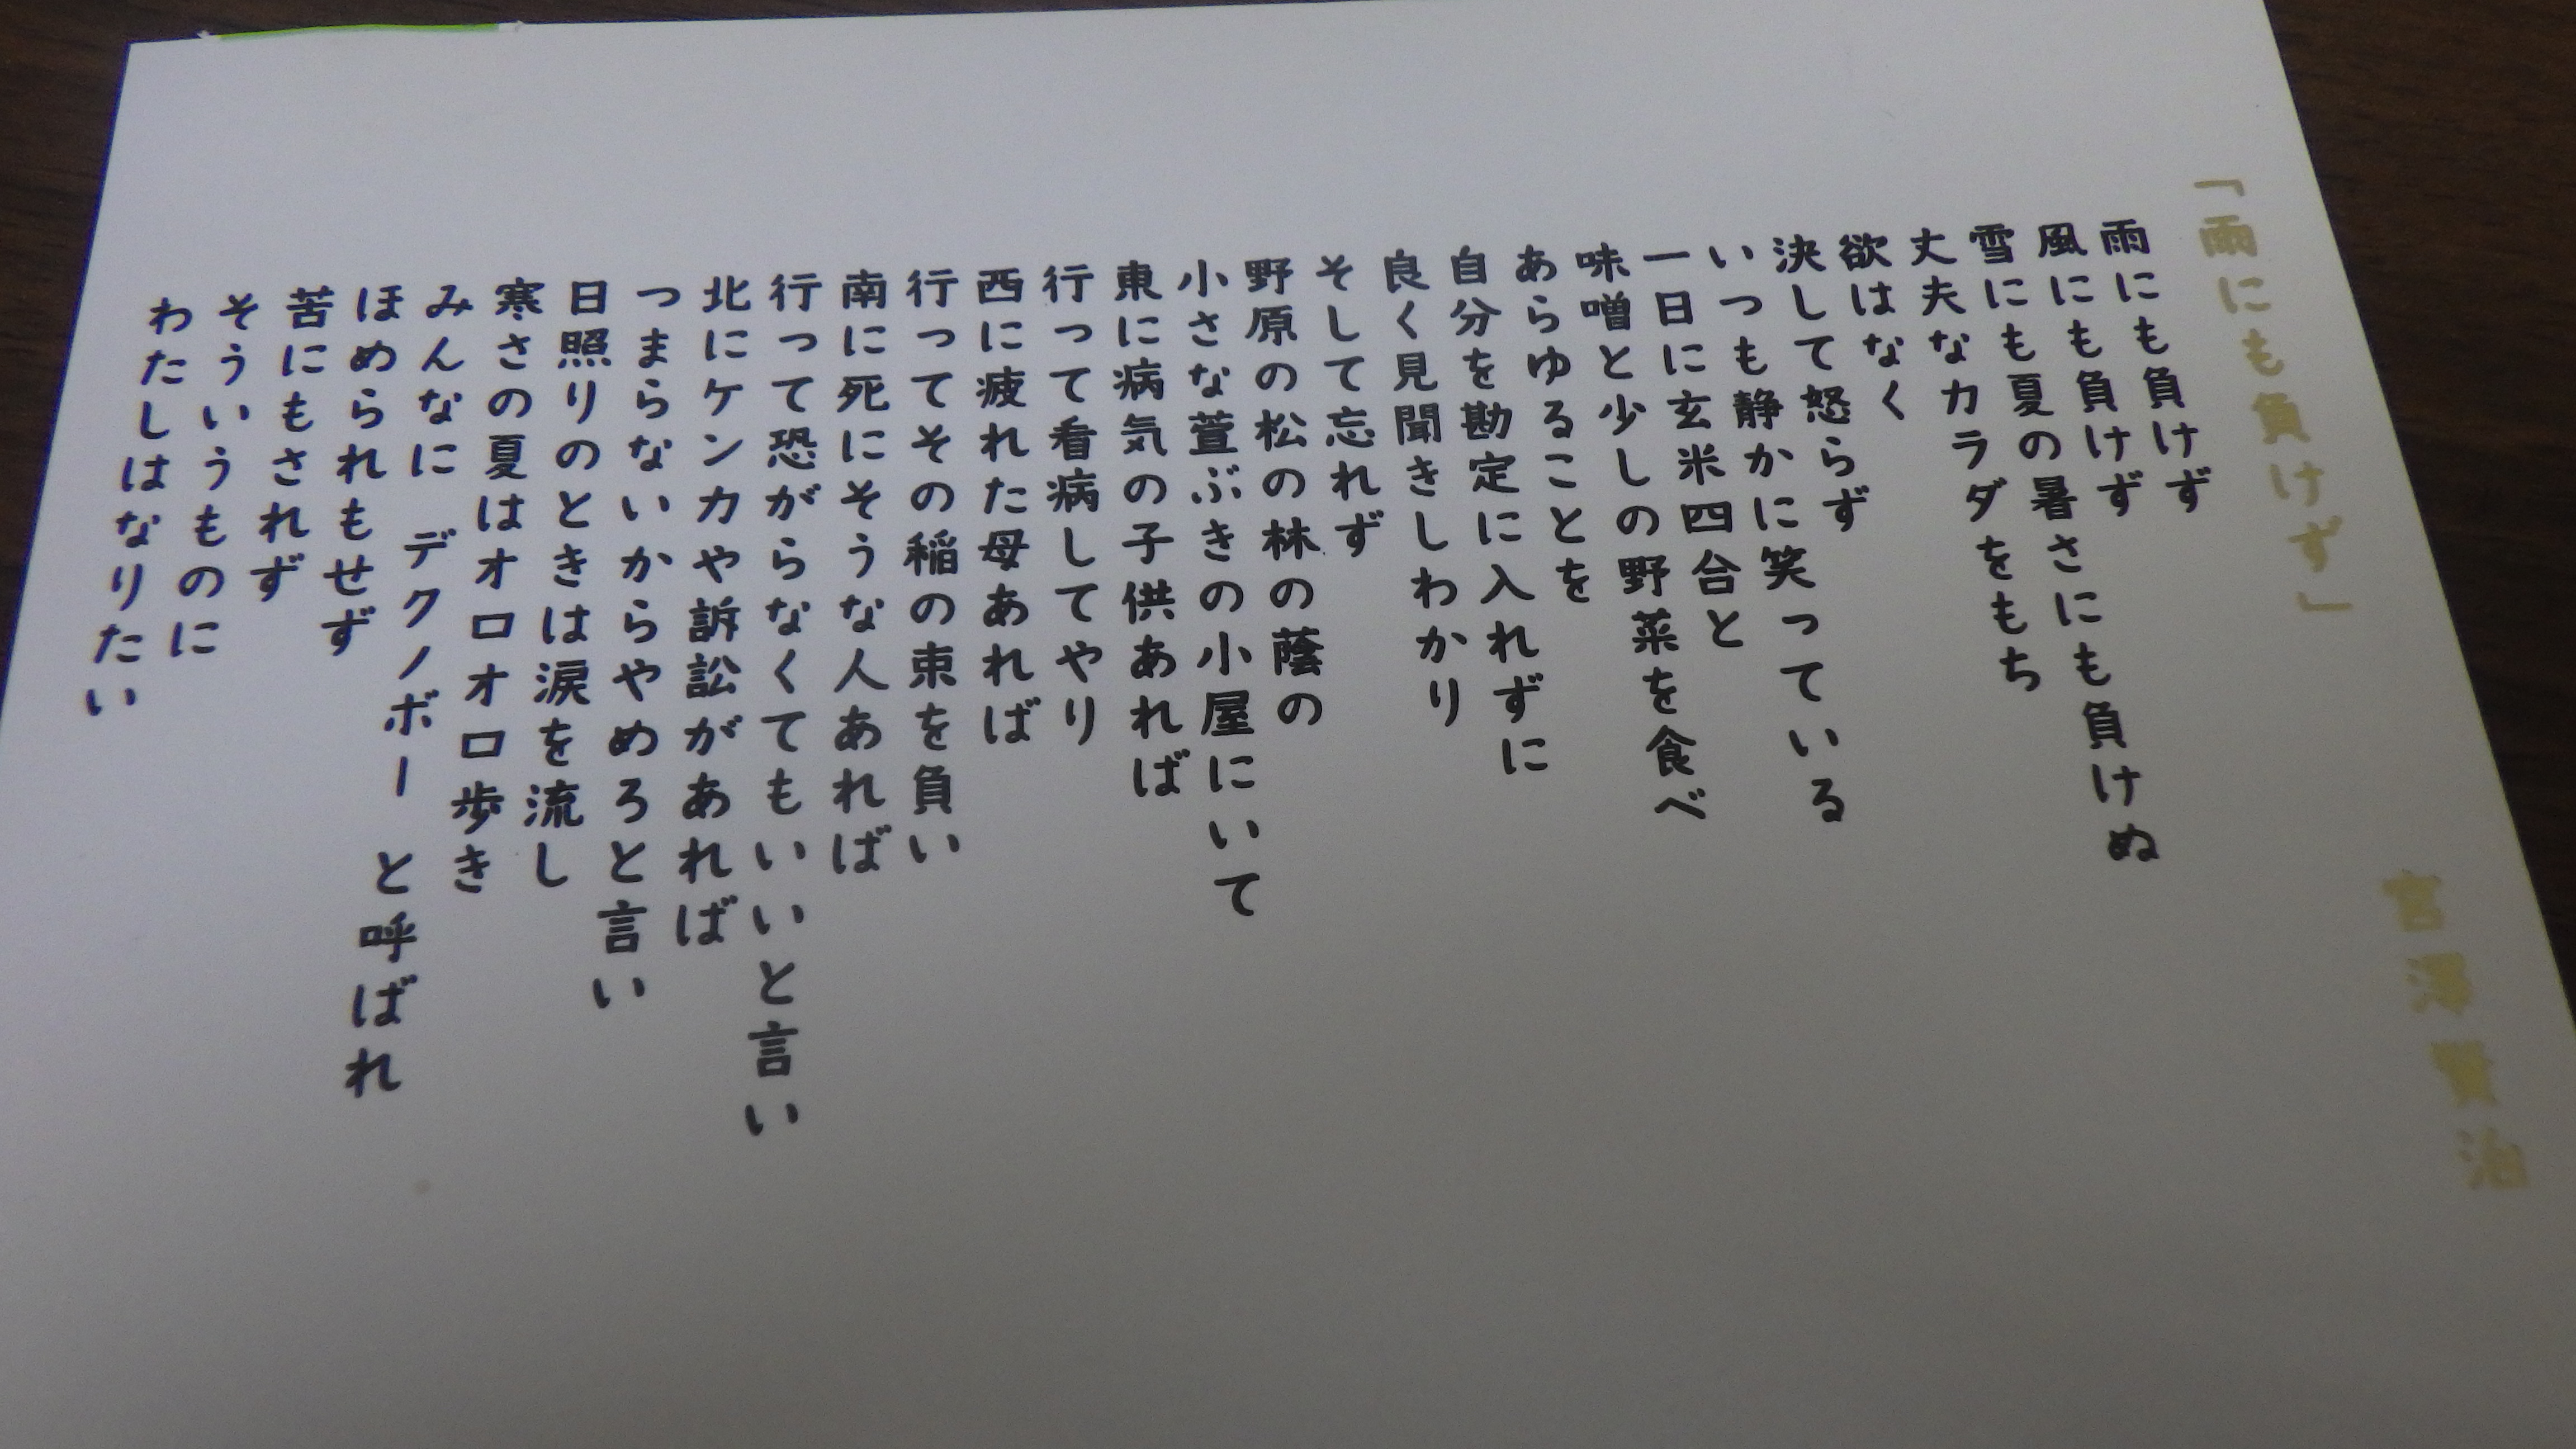 「雨にも負けず」
宮澤賢治
雨にも負けず
風にも負けず
雪にも夏の暑さにも負けぬ
丈夫なカラダをもち
欲はなく
決して怒らず
いつも静かに笑っている
一日に玄米四合と
味噌と少しの野菜を食べ
あらゆることを
自分を勘定に入れずに
良く見聞きしわかり
そして忘れず
野原の松の林の蔭の
小さな萱ぶきの小屋にいて
東に病気の子供あれば
行って看病してやり
西に疲れた母あれば
行ってその稲の束を負い
南に死にそうな人あれば
行って恐がらなくてもいいと言い
北にケンカや訴訟があれば
つまらないからやめろと言い
日照りのときは涙を流し
寒さの夏はオロオロ歩き
みんなに デクノボー と呼ばれ
ほめられもせず
苦にもされず
そういうものに
わたしはなりたい